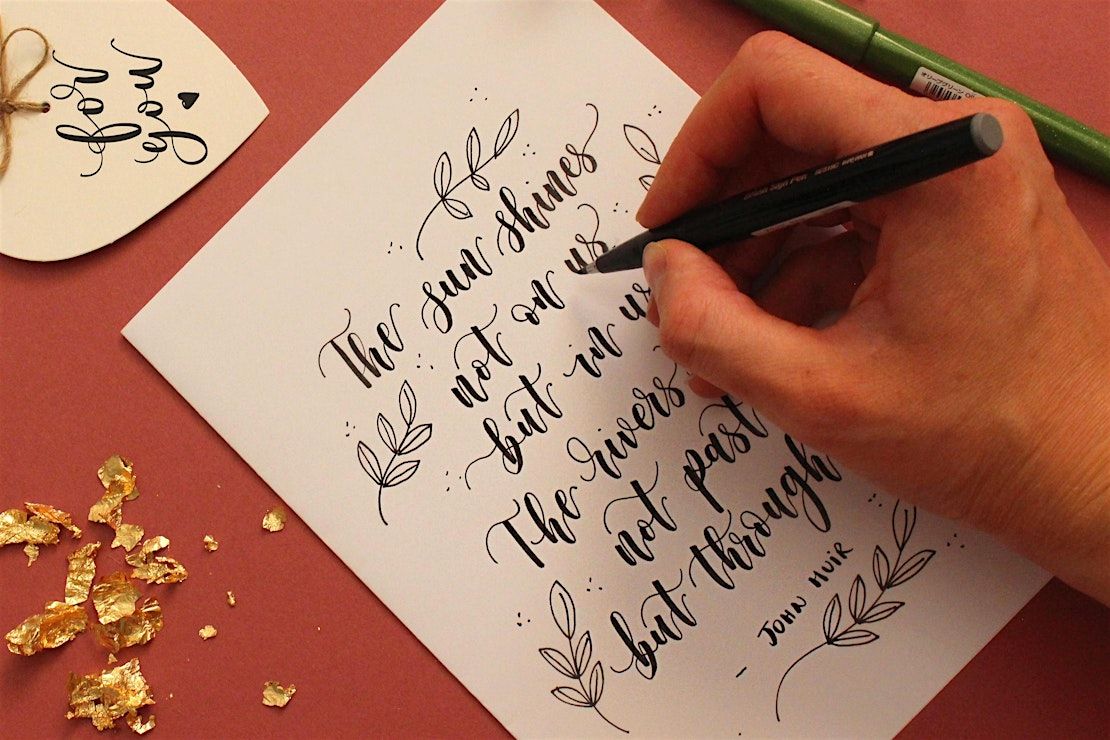 for
you
The sun shines
not on us
but in us
The rivers
not past
but through
- JOHN MUIR
Brush Sign Pen
オリーブグリーン Oli